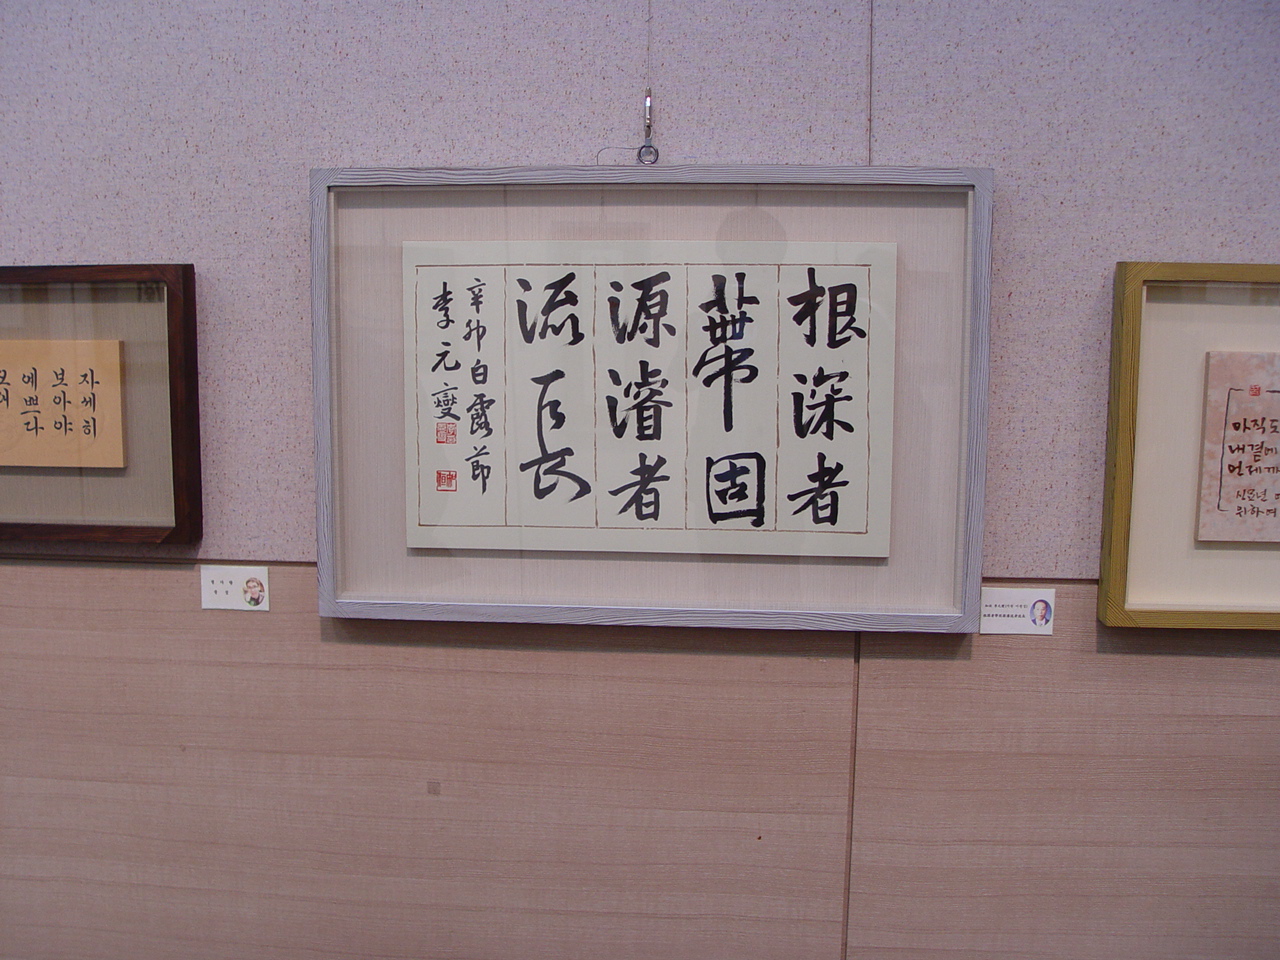 根深者
蔕固
源濬者
流長
辛卯白露節
李元燮
자세히
보아야
예쁘다
아직도
내곁에
언제까
신묘년
위하여